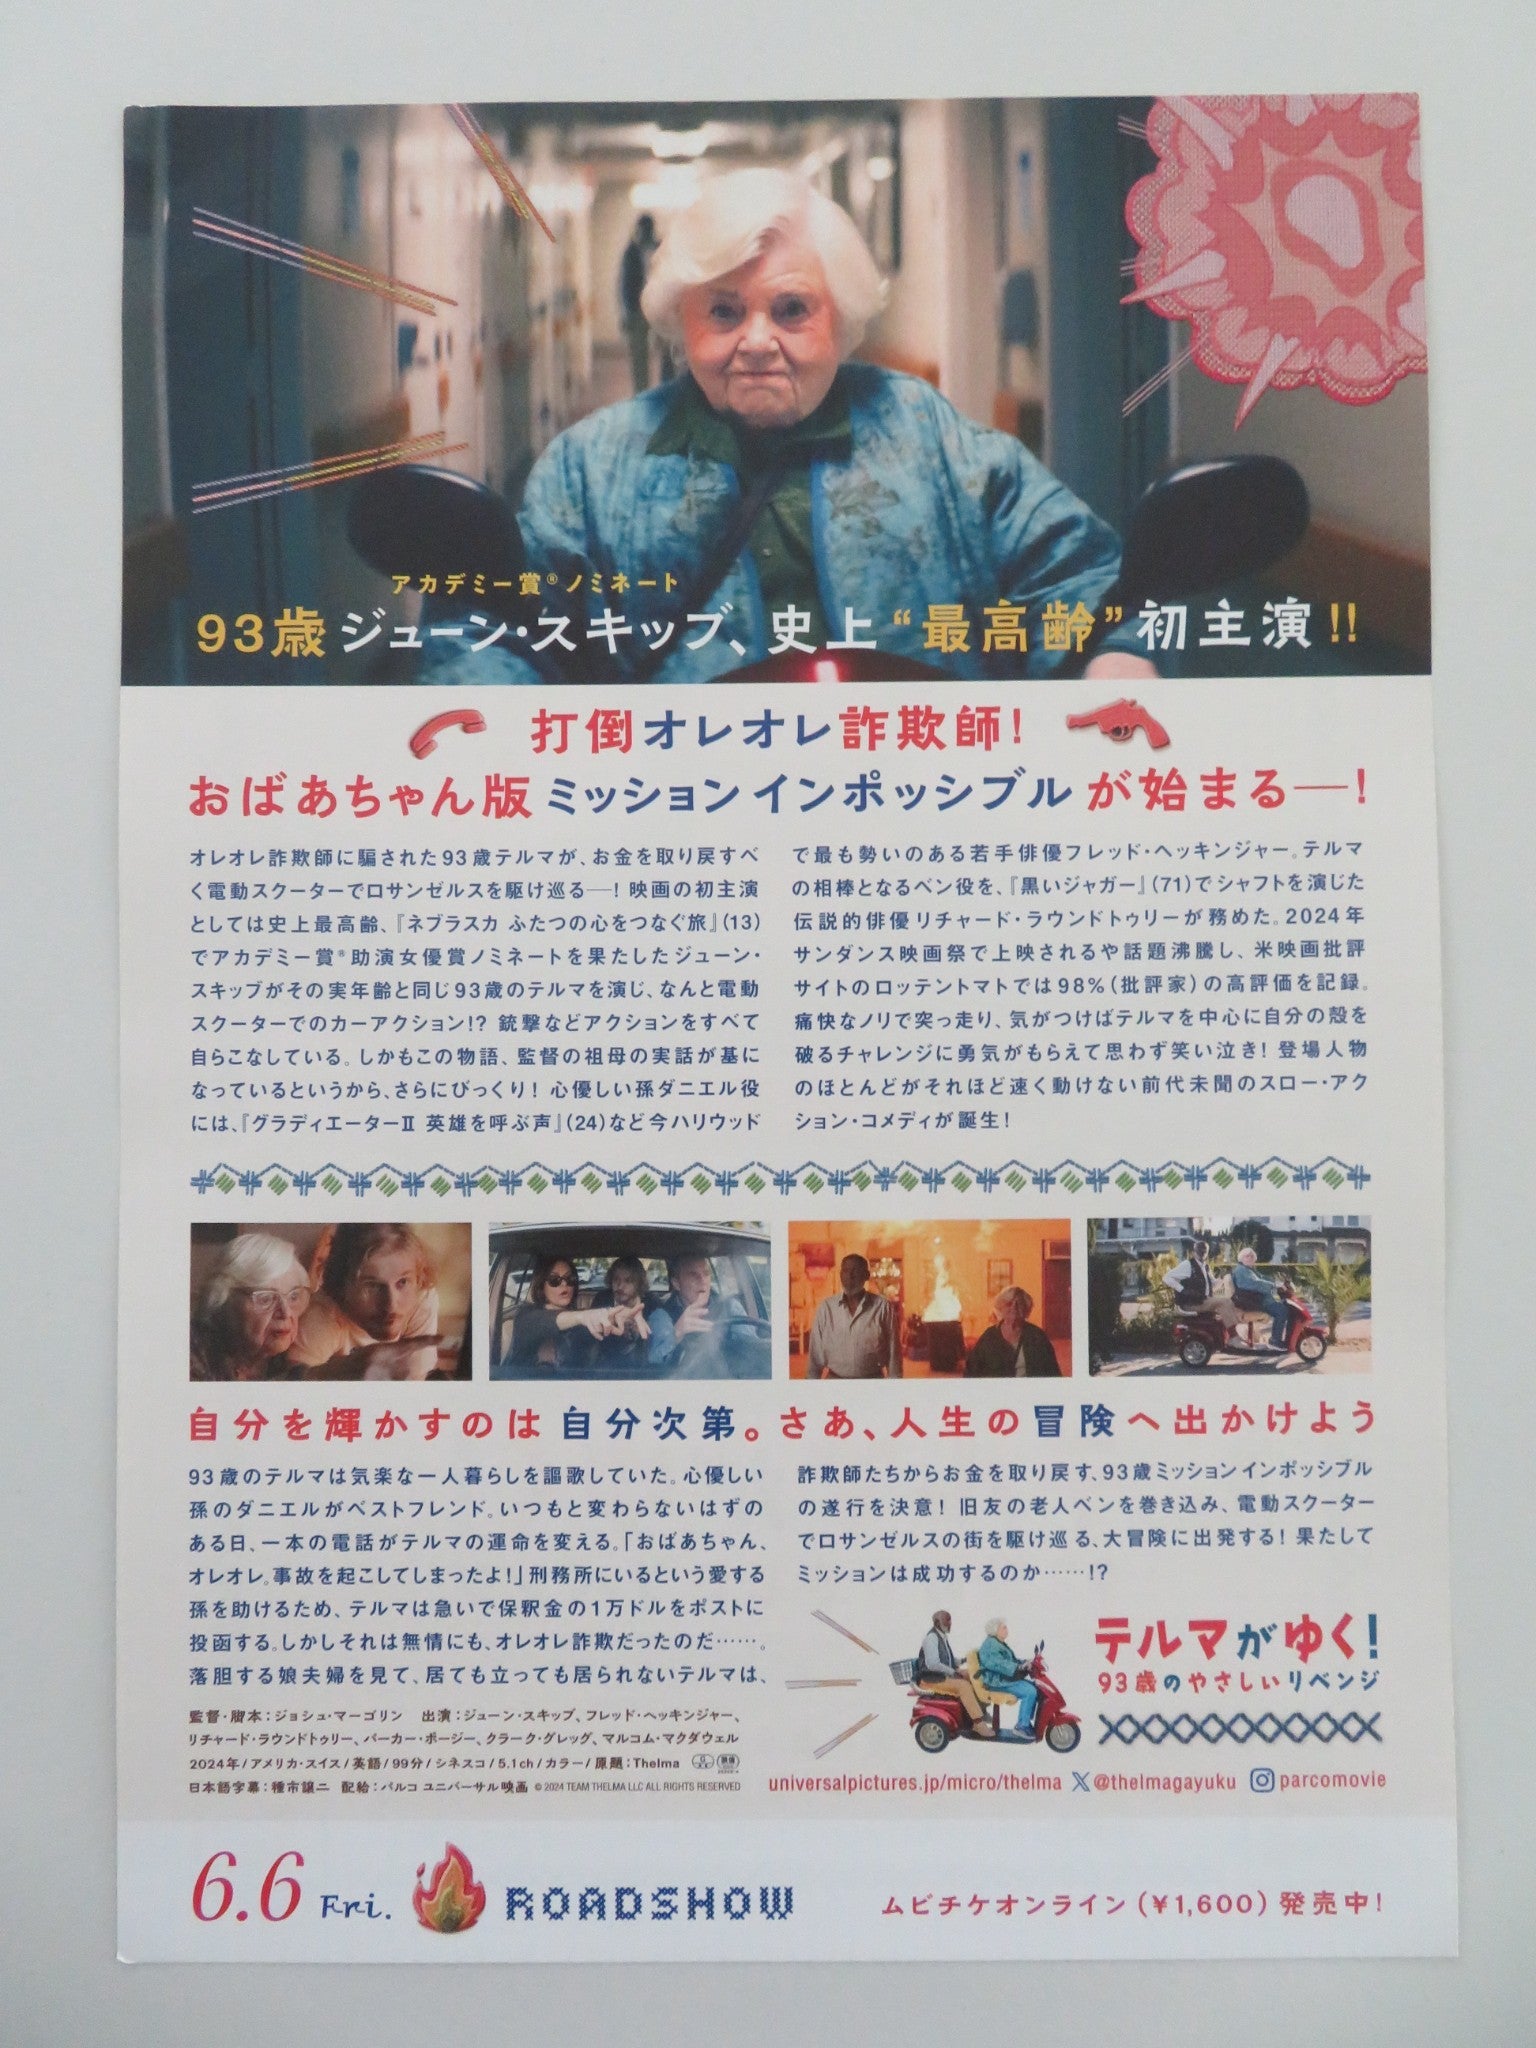 アカデミー賞®ノミネート
93歳ジューン・スキッブ、史上“最高齢”初主演!!
打倒オレオレ詐欺師!
おばあちゃん版ミッションインポッシブルが始まる―!
オレオレ詐欺師に騙された93歳テルマが、お金を取り戻すべ
く電動スクーターでロサンゼルスを駆け巡る―! 映画の初主演
としては史上最高齢、『ネブラスカ ふたつの心をつなぐ旅』(13)
でアカデミー賞®助演女優賞ノミネートを果たしたジューン・
スキッブがその実年齢と同じ93歳のテルマを演じ、なんと電動
スクーターでのカーアクション!? 銃撃などアクションをすべて
自らこなしている。しかもこの物語、監督の祖母の実話が基に
なっているというから、さらにびっくり! 心優しい孫ダニエル役
には、『グラディエーターⅡ 英雄を呼ぶ声』(24)など今ハリウッド
で最も勢いのある若手俳優フレッド・ヘッキンジャー。テルマ
の相棒となるベン役を、『黒いジャガー』(71)でシャフトを演じた
伝説的俳優リチャード・ラウンドトゥリーが務めた。2024年
サンダンス映画祭で上映されるや話題沸騰し、米映画批評
サイトのロッテントマトでは98%(批評家)の高評価を記録。
痛快なノリで突っ走り、気がつけばテルマを中心に自分の殻を
破るチャレンジに勇気がもらえて思わず笑い泣き! 登場人物
のほとんどがそれほど速く動けない前代未聞のスロー・アク
ション・コメディが誕生!
自分を輝かすのは自分次第。さあ、人生の冒険へ出かけよう
93歳のテルマは気楽な一人暮らしを謳歌していた。心優しい
孫のダニエルがベストフレンド。いつもと変わらないはずの
ある日、一本の電話がテルマの運命を変える。「おばあちゃん、
オレオレ。事故を起こしてしまったよ!」刑務所にいるという愛する
孫を助けるため、テルマは急いで保釈金の1万ドルをポストに
投函する。しかしそれは無情にも、オレオレ詐欺だったのだ……。
落胆する娘夫婦を見て、居ても立っても居られないテルマは、
詐欺師たちからお金を取り戻す、93歳ミッションインポッシブル
の遂行を決意! 旧友の老人ベンを巻き込み、電動スクーター
でロサンゼルスの街を駆け巡る、大冒険に出発する! 果たして
ミッションは成功するのか……!?
テルマがゆく!
93歳のやさしいリベンジ
監督・脚本:ジョシュ・マーゴリン 出演:ジューン・スキッブ、フレッド・ヘッキンジャー、
リチャード・ラウンドトゥリー、パーカー・ポージー、クラーク・グレッグ、マルコム・マクダウェル
2024年/アメリカ・スイス/英語/99分/シネスコ/5.1ch/カラー/原題:Thelma
日本語字幕:種市譲二 配給:パルコ ユニバーサル映画 © 2024 TEAM THELMA LLC ALL RIGHTS RESERVED
universalpictures.jp/micro/thelma X@thelmagayuku parcomovie
6.6 Fri. ROADSHOW ムビチケオンライン(¥1,600)発売中!